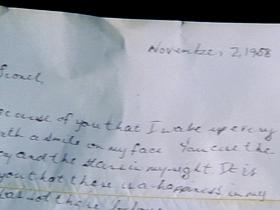 November 2, 1958
ecause of you that I wake up every
with a smile on my face You are the
and the stars in my night. It is
you that there is a happiness in my